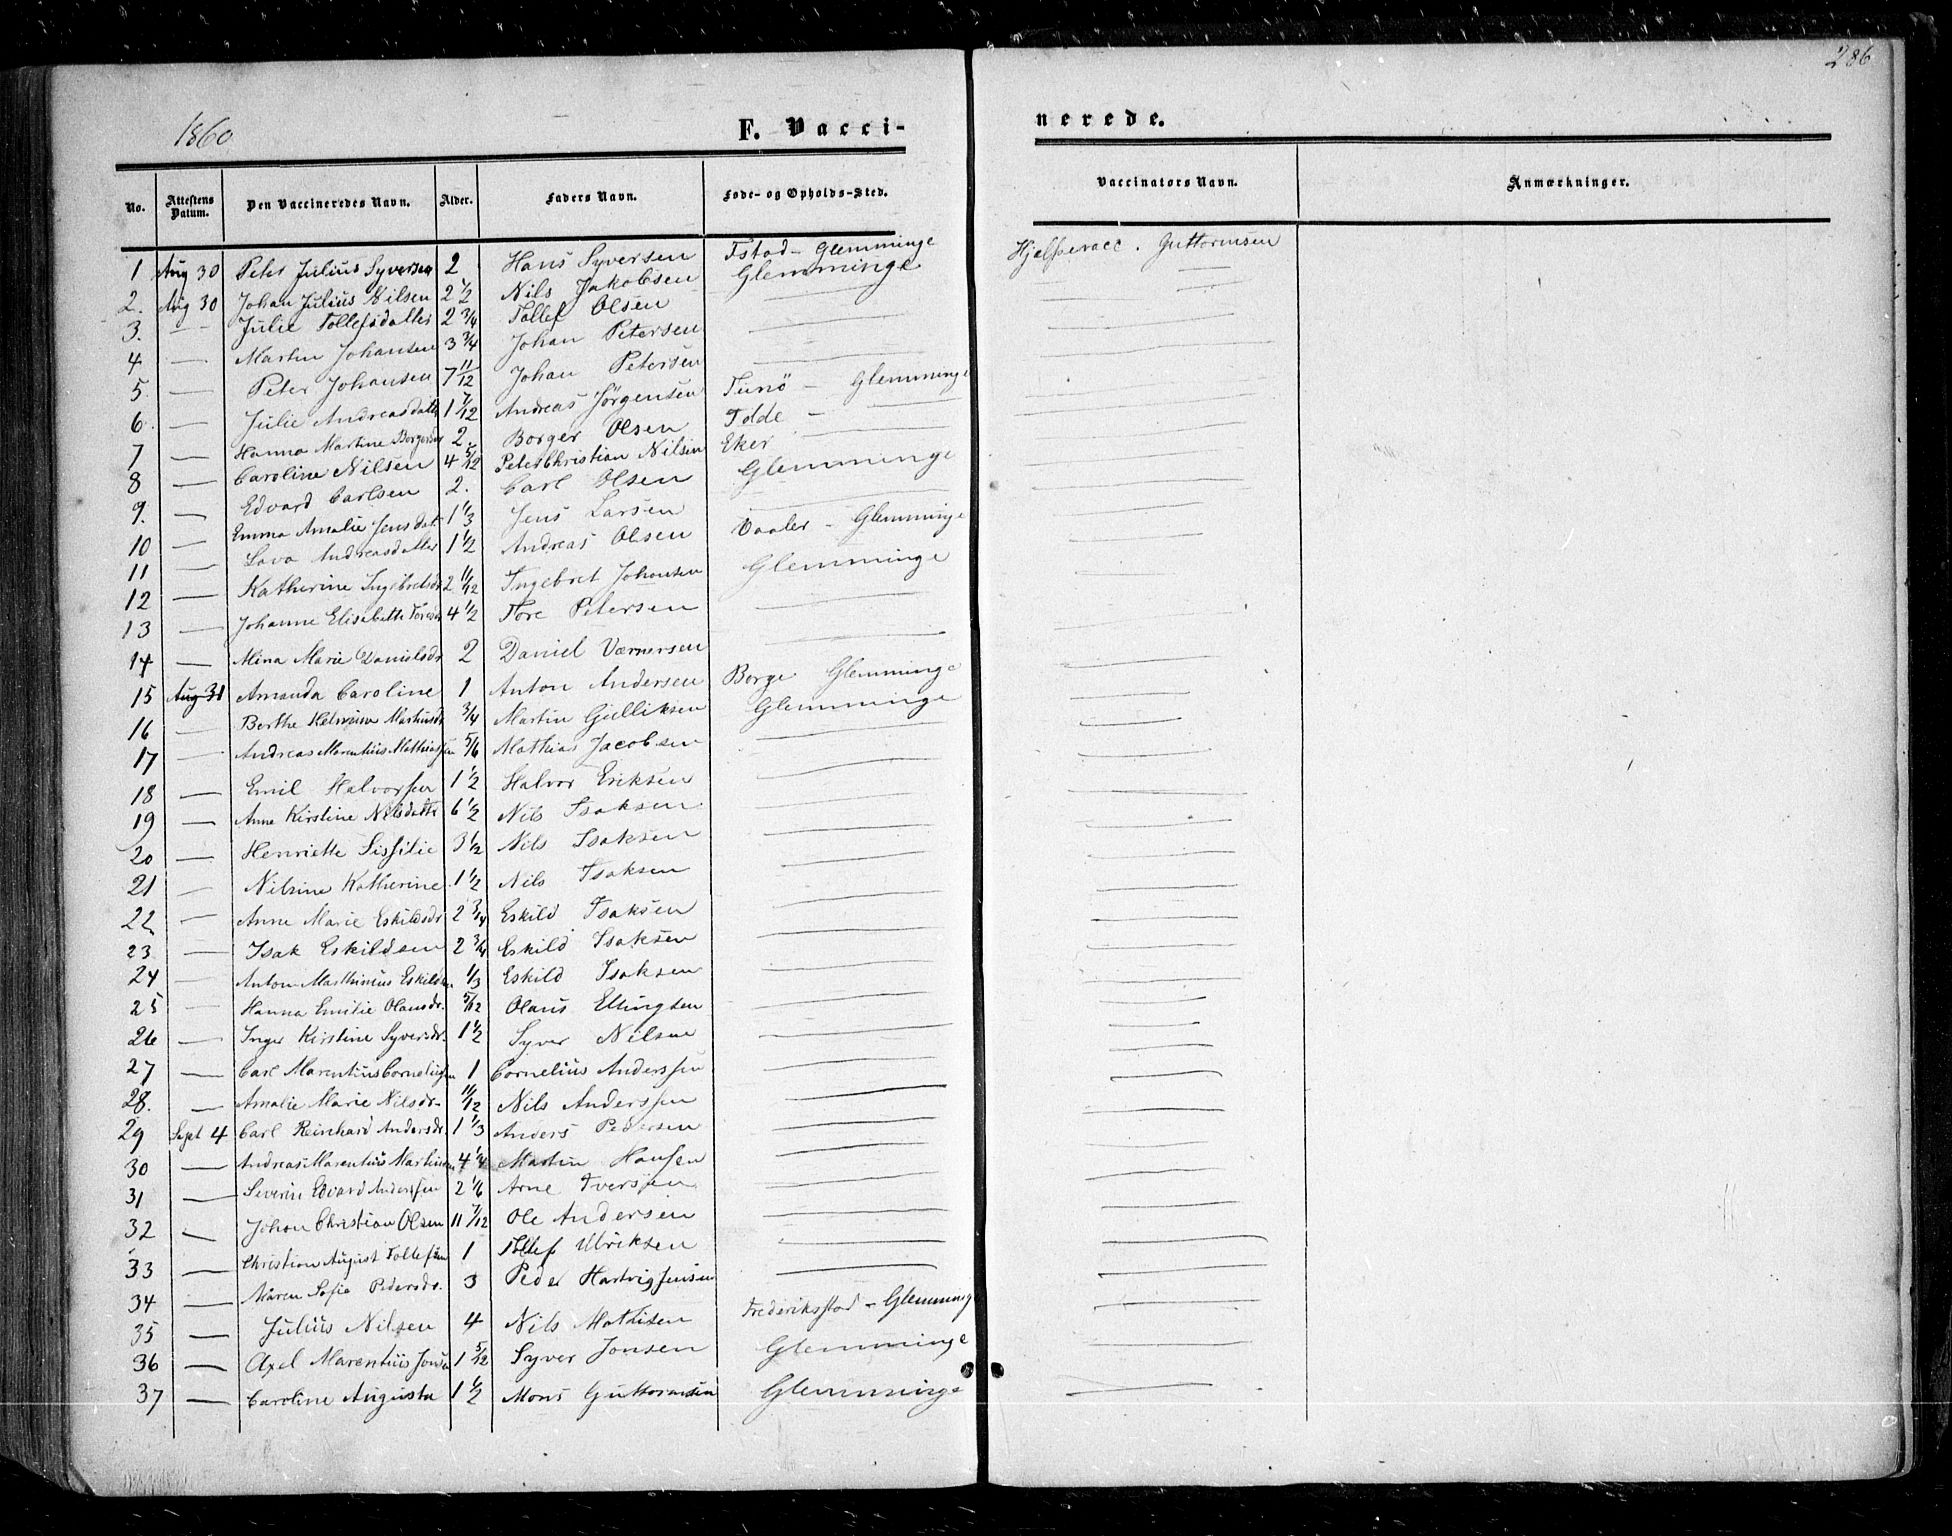 286
1860 F. Vacci- nerede.
No. Attestens Datum. Den Vaccineredes Navn. Alder. Faders Navn. Føde- og Opholds-Sted. Vaccinators Navn. Anmærkninger.
1 Aug 30 Peter Julius Syversen 2 Hans Syversen Fstad - Glemminge Hjelpevacc. Guttormsen
2. Aug 30 Johan Julius Nilsen 2 1/2 Nils Jakobsen Glemminge —
3. — Julie Tollefsdatter 2 3/4 Tollef Olsen — —
4 — Martin Johansen 3 3/4 Johan Petersen — —
5 — Peter Johansen 7 11/12 Johan Petersen — —
6 — Julie Andreasdattr 1 7/12 Andreas Jørgensen Tunø - Glemminge —
7 — Hanna Martine Borgersdr 2. Borger Olsen Odde - — —
8 — Caroline Nilsen 4 5/12 Peter Christian Nilsen Eker — —
9. — Edvard Carlsen 2. Carl Olsen Glemminge —
10 — Emma Amalie Jensdat. 1 1/3 Jens Larsen — —
11 — Lova Andreasdatter 1 1/2 Andreas Olsen Vaaler - Glemminge —
12 — Katherine Ingebretsdr 2 11/12 Ingebret Johansen Glemminge —
13 — Johanne Elisabette Toresdr 4 1/2 Tore Petersen — —
14 — Mina Marie Danielsdr 2 Daniel Værnersen — —
15 Aug 31 Amanda Caroline 1 Anton Andersen Borge Glemminge —
16 — Berthe Helmine Martinsdr 3/4 Martin Gulliksen Glemminge —
17 — Andreas Marentius Mathiassen 5/6 Mathias Jacobsen — —
18 — Emil Halvorsen 1 1/2 Halvor Eriksen — —
19 — Anne Kirstine Nilsdattr 6 1/2 Nils Isaksen — —
20 — Henriette Sissilie 3 1/2 Nils Isaksen — —
21 — Nilsine Katherine 1 1/2 Nils Isaksen — —
22 — Anne Marie Eskildsdr 2 3/4 Eskild Isaksen — —
23 — Isak Eskildsen 2 3/4 Eskild Isaksen — —
24 — Anton Marthinius Eskildsen 1/3 Eskild Isaksen — —
25 — Hanna Emilie Olausdr. 5/12 Olaus Ellingsen — —
26 — Inger Kirstine Syversdr. 1 1/2 Syver Nilsen — —
27 — Carl Marentius Corneliussen 1 Cornelius Anderssen — —
28. — Amalie Marie Nilsdr. 11/12 Nils Anderssen — —
29 Sept 4 Carl Reinhard Andersdr. 1 1/3 Anders Pedersen — —
30 — Andreas Marentius Martinsen 4 1/4 Martin Hansen — —
31 — Severin Edvard Anderssen 2 1/6 Arne Iversen — —
32 — Johan Christian Olsen 11 7/12 Ole Andersen — —
33 — Christian August Tollefsen 1 Tollef Ulriksen — —
34 — Maren Sofie Pedersdr. 3 Peder Hartvigsensen — —
35 — Julius Nilsen 4 Nils Mathisen Frederiksstad - Glemming —
36 — Axel Marentius Jonsen 1 5/12 Syver Jonsen Glemminge —
37 — Caroline Augusta 1 1/2 Mons Guttormsen Glemminge —